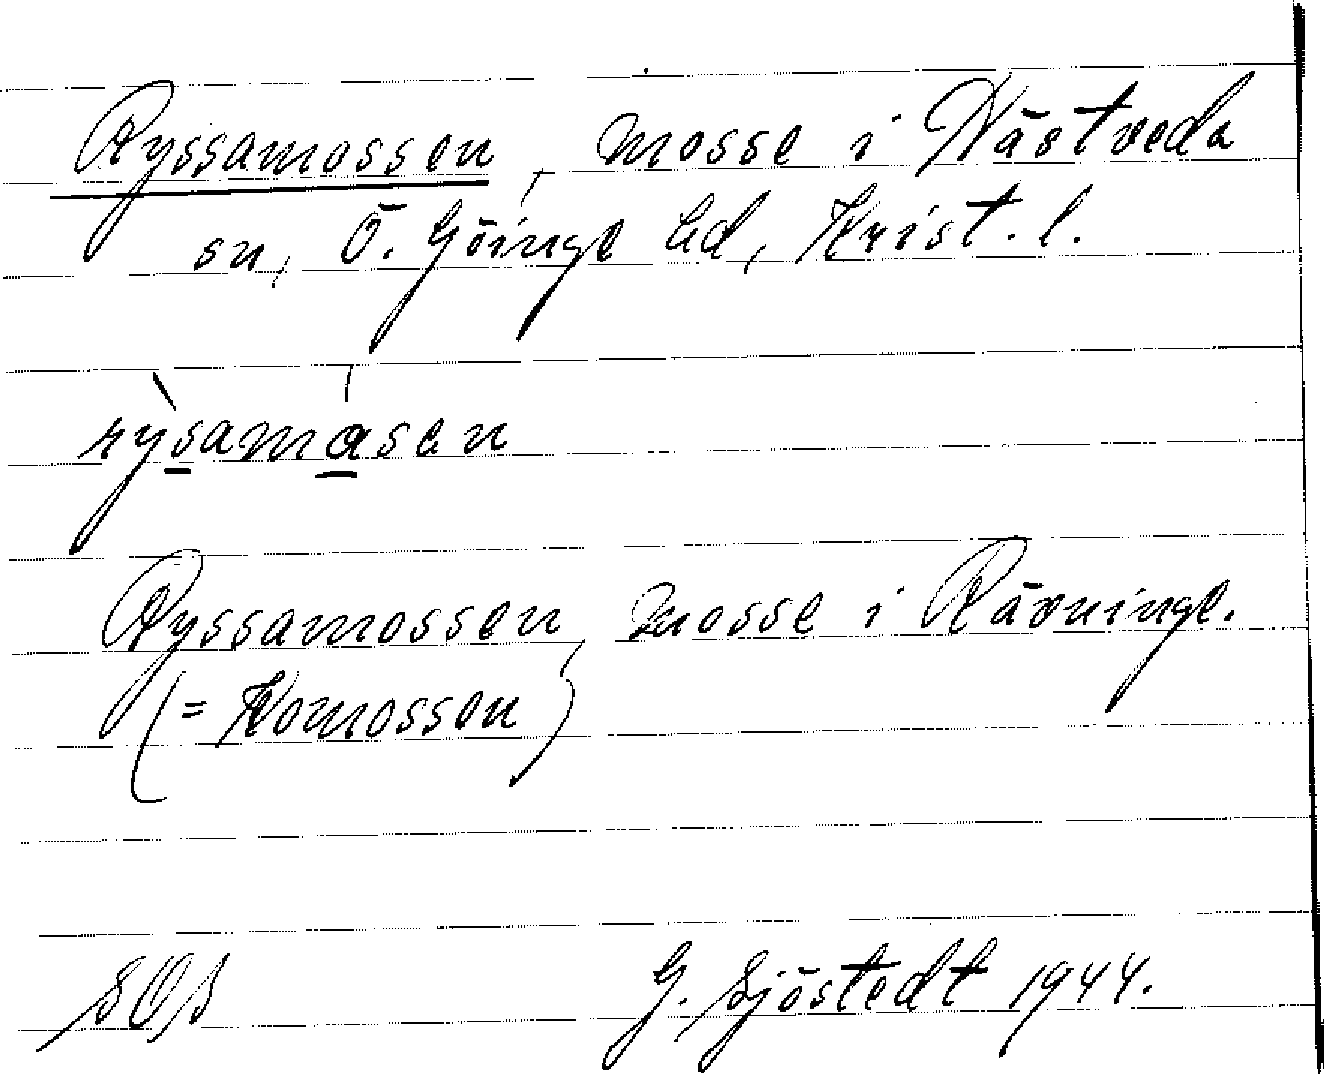 Ryssamossen, mosse i Nästveda
sn, Ö. Göinge hd, Krist. l.
rysamasen
Ryssamossen, mosse i Rävninge.
(= Komossen)
SOS
G. Sjöstedt 1944.